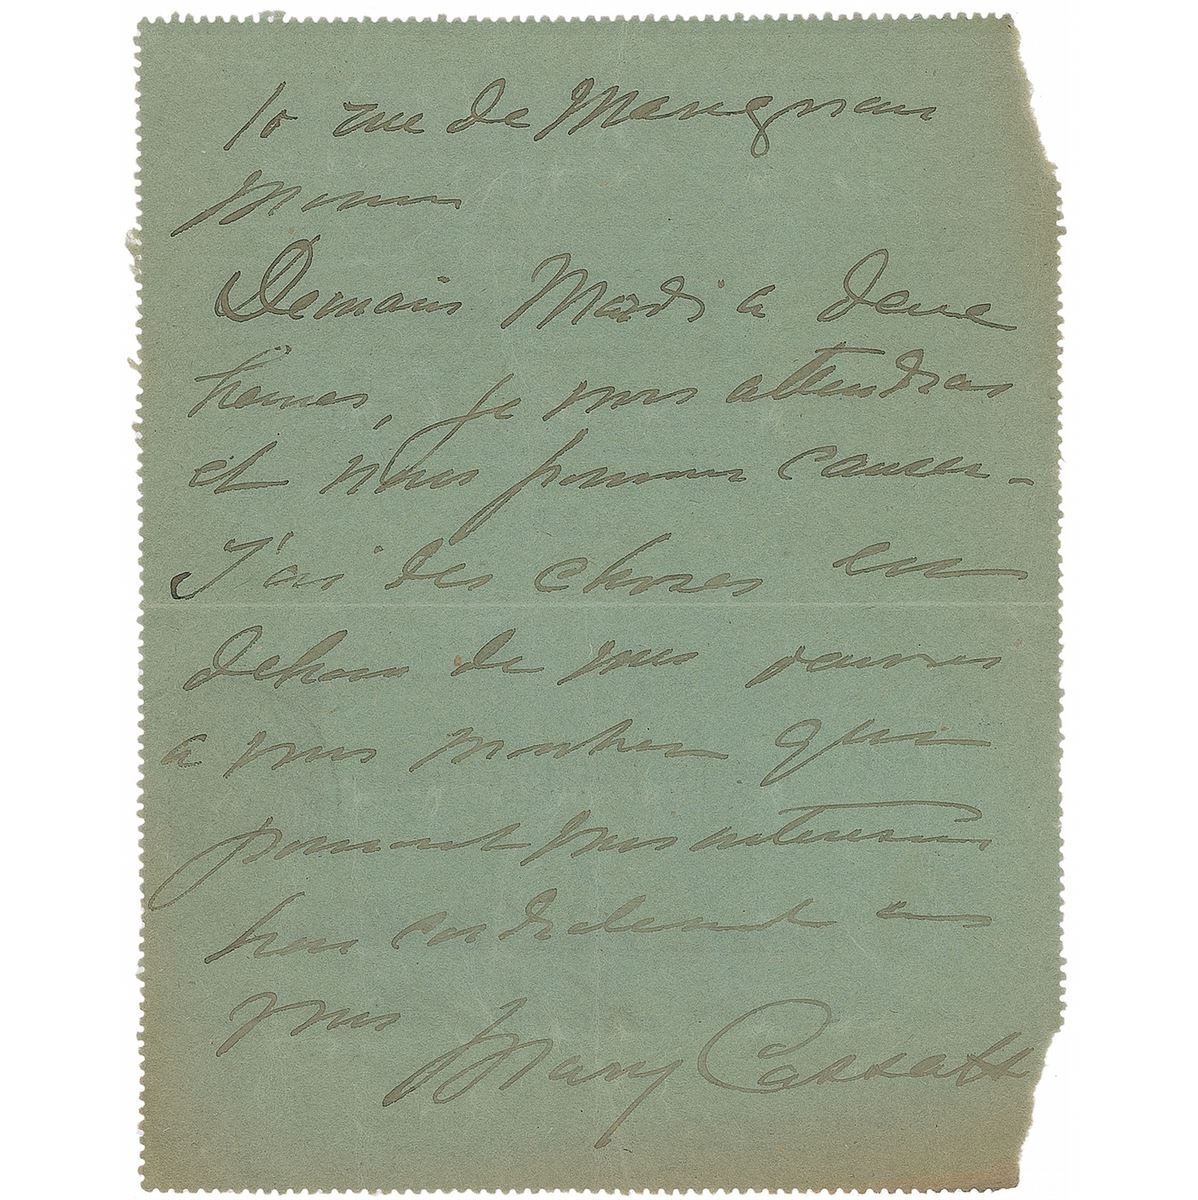 10 rue de Marignan
Demain Mardi a deux
heures, je vous attendrai
et nous pouvons causer -
J'ai des choses en
dehors de mes œuvres
a vous montrer qui
pourront vous interesser
bien cordialement a
vous Mary Cassatt